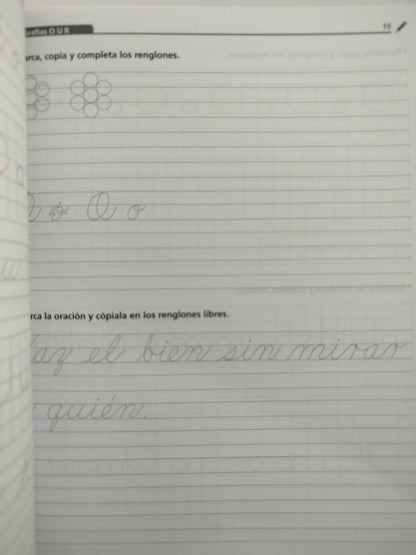 Grafías O U R
19
arca, copia y completa los renglones.
O o O o
rca la oración y cópiala en los renglones libres.
az el bien sin mirar
quién.